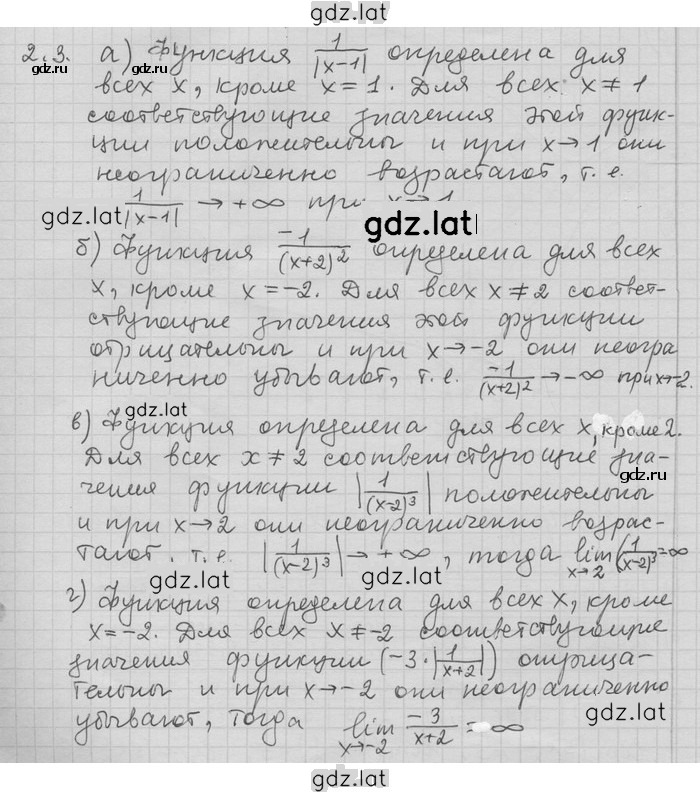 gdz.lat
2.3. а) Функция 1/|x-1| определена для
gdz.lat gdz.lat
всех x, кроме x = 1. Для всех x ≠ 1
соответствующие значения этой функ-
ции положительны и при x→1 они
gdz.lat gdz.lat
неограниченно возрастают, т. е.
gdz.lat 1/|x-1| → +∞ при x→1 gdz.lat
б) Функция -1/(x+2)² определена для всех
x, кроме x = -2. Для всех x ≠ 2 соответ-
ствующие значения этой функции
отрицательны и при x→-2 они неогра
ниченно убывают, т. е. -1/(x+2)² → -∞ при x→-2.
gdz.lat
в) Функция определена для всех x, кроме 2.
gdz.lat gdz.lat
Для всех x ≠ 2 соответствующие зна-
чения функции |1/(x-2)³| положительны
и при x→2 они неограниченно возрас-
тают. т. е. |1/(x-2)³| → +∞, тогда lim x→2 (1/(x-2)³ = ∞
gdz.lat gdz.lat
г) Функция определена для всех x, кроме
x = -2. Для всех x ≠ -2 соответствующие
значения функции (-3·|1/x+2|) отрица-
тельны и при x→-2 они неограниченно
gdz.lat gdz.lat
убывают, тогда lim x→-2 -3/x+2 = ∞
gdz.lat